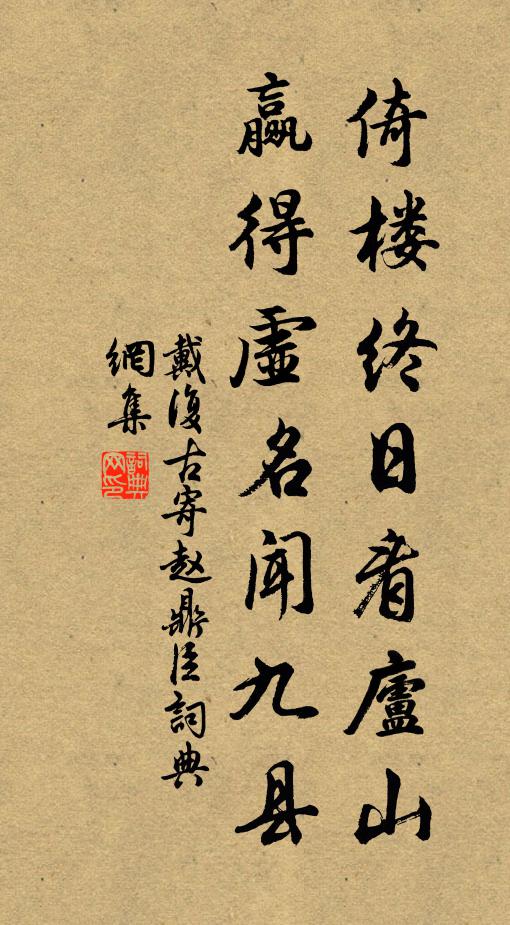 倚楼终日看廬山
赢得虛名闻九县
戴復古寄赵鼎臣詞典
網集
詞典网印